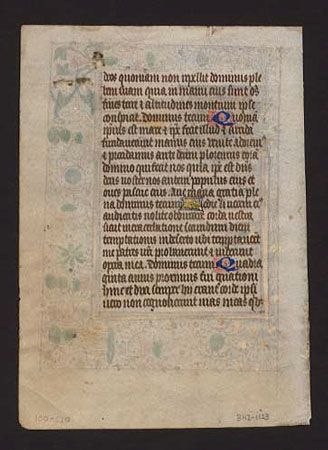 deos quoniam non repellet dominus ple
bem suam quia in manu eius sunt oms
fines terre et altitudines montium ipse
conspicit. Dominus tecum Quonia
ipsius est mare et ipse fecit illud et arida
fundauerunt manus eius venite adorem
et procidamus ante deum ploremus cora
domino qui fecit nos quia ipse est dns
deus noster nos autem populus eius et
oues pascue eius. Aue maria gratia ple
na dominus tecum Hodie si uocem eius
audieritis nolite obdurare corda vestra
sicut in exacerbatione secundum diem
temptationis in deserto ubi temptauerunt
me patres vri probauerunt et uiderunt
opera mea. Dominus tecum Quadra
ginta annis proximus fui generationi
huic et dixi semper hii errant corde ipsi
uero non cognouerunt uias meas